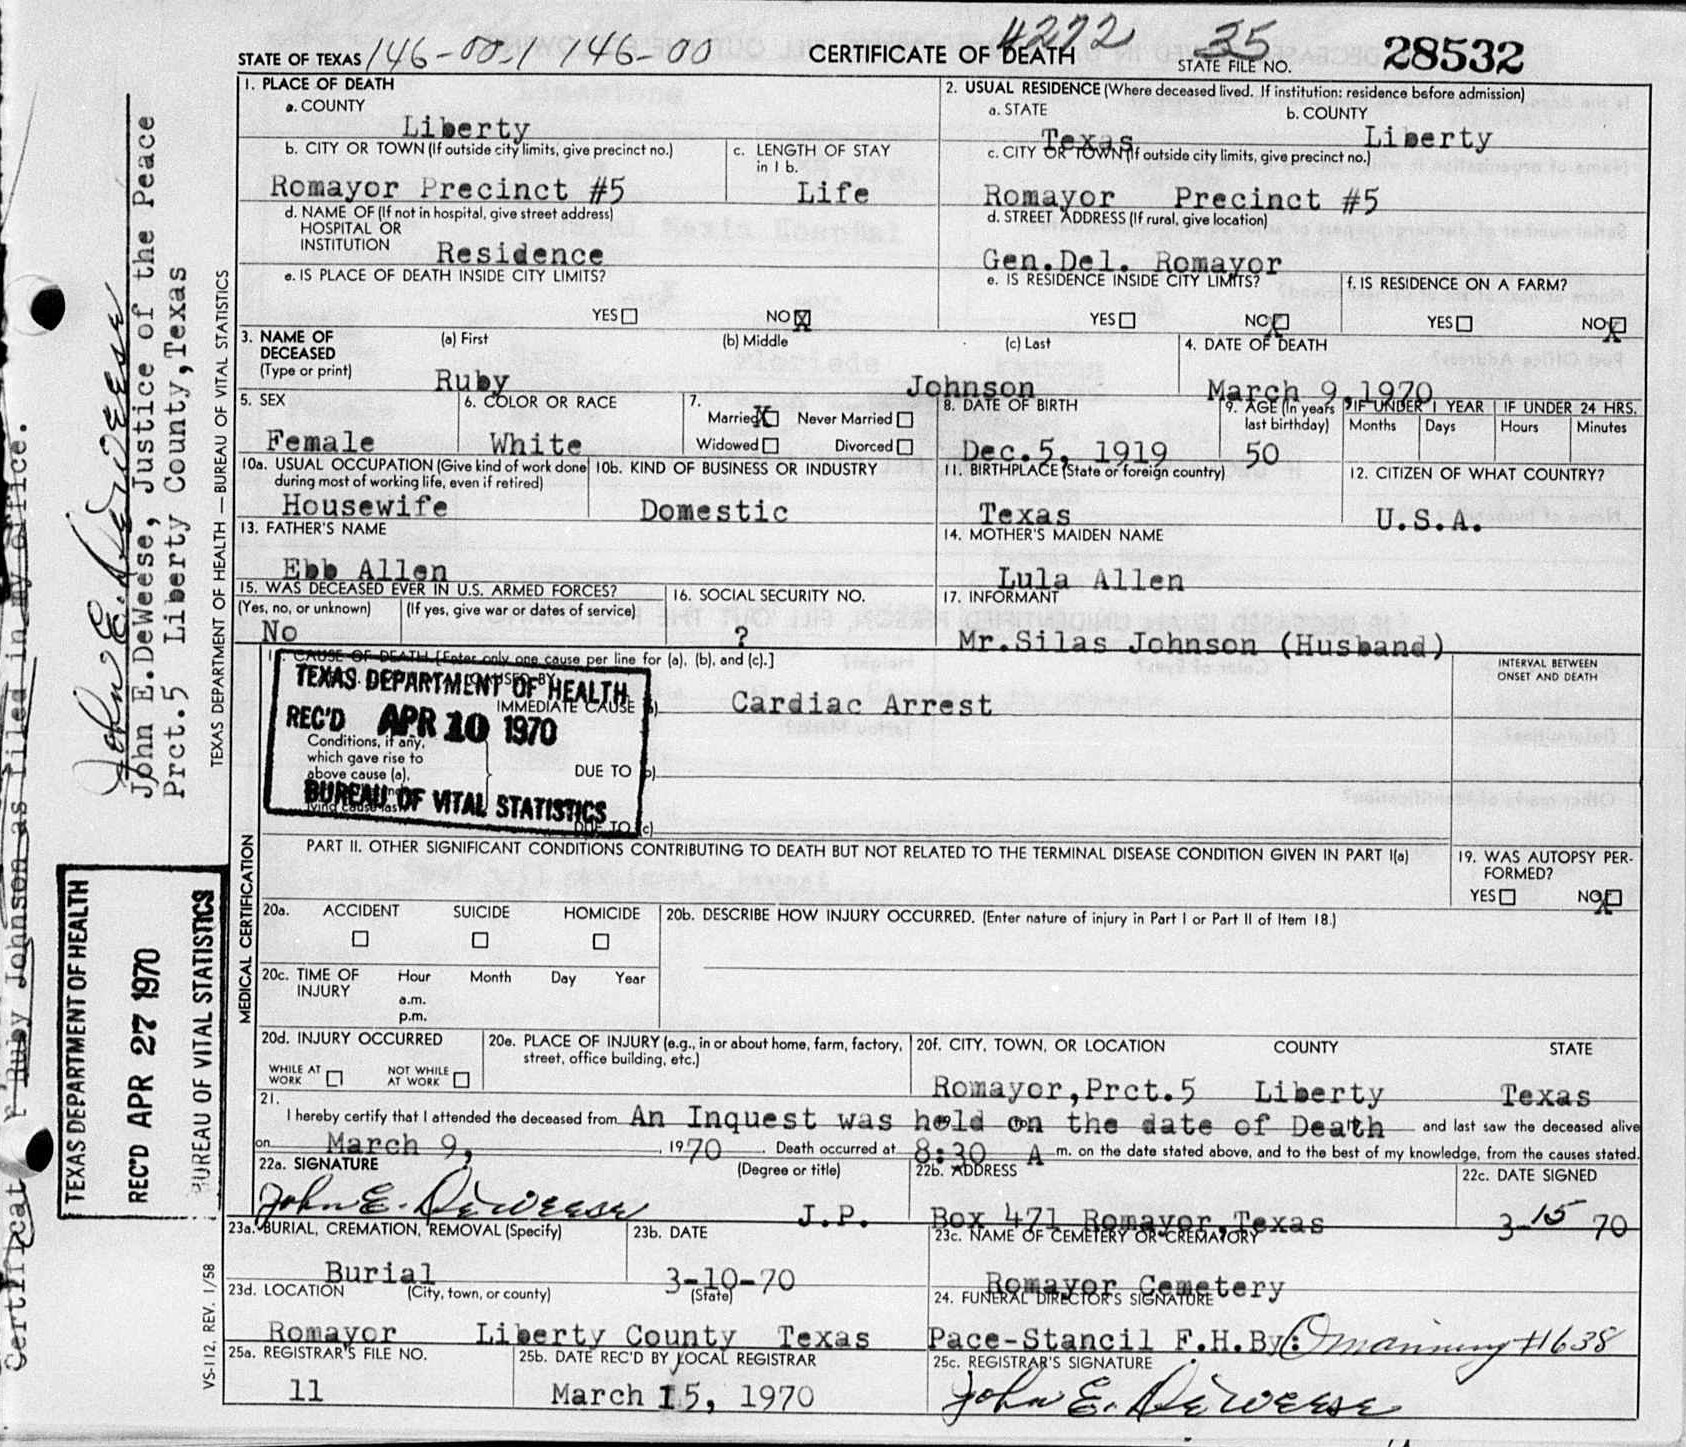 4272 35
STATE OF TEXAS 146-00-1 146-00 CERTIFICATE OF DEATH STATE FILE NO. 28532
1. PLACE OF DEATH
a. COUNTY
Liberty
2. USUAL RESIDENCE (Where deceased lived. If institution: residence before admission)
a. STATE b. COUNTY
Texas Liberty
b. CITY OR TOWN (If outside city limits, give precinct no.) c. LENGTH OF STAY in 1 b.
Romayor Precinct #5 Life
c. CITY OR TOWN (If outside city limits, give precinct no.)
Romayor Precinct #5
d. NAME OF (If not in hospital, give street address)
HOSPITAL OR
INSTITUTION Residence
d. STREET ADDRESS (If rural, give location)
Gen.Del. Romayor
e. IS PLACE OF DEATH INSIDE CITY LIMITS?
YES NO X
e. IS RESIDENCE INSIDE CITY LIMITS? f. IS RESIDENCE ON A FARM?
YES NO X YES NO X
3. NAME OF DECEASED (Type or print) (a) First (b) Middle (c) Last 4. DATE OF DEATH
Ruby Johnson March 9,1970
5. SEX 6. COLOR OR RACE 7. Married X Never Married Widowed Divorced
Female White
8. DATE OF BIRTH 9. AGE (In years last birthday) IF UNDER 1 YEAR IF UNDER 24 HRS.
Months Days Hours Minutes
Dec.5, 1919 50
10a. USUAL OCCUPATION (Give kind of work done during most of working life, even if retired) 10b. KIND OF BUSINESS OR INDUSTRY
Housewife Domestic
11. BIRTHPLACE (State or foreign country) 12. CITIZEN OF WHAT COUNTRY?
Texas U.S.A.
13. FATHER'S NAME
Ebb Allen
14. MOTHER'S MAIDEN NAME
Lula Allen
15. WAS DECEASED EVER IN U.S. ARMED FORCES?
(Yes, no, or unknown) (If yes, give war or dates of service)
No
16. SOCIAL SECURITY NO.
?
17. INFORMANT
Mr.Silas Johnson (Husband)
CAUSE OF DEATH [Enter only one cause per line for (a), (b), and (c).]
INTERVAL BETWEEN
ONSET AND DEATH
CAUSED BY
IMMEDIATE CAUSE (a) Cardiac Arrest
Conditions, if any,
which gave rise to
above cause (a),
lying cause last.
DUE TO (b)
DUE TO (c)
TEXAS DEPARTMENT OF HEALTH
REC'D APR 10 1970
BUREAU OF VITAL STATISTICS
PART II. OTHER SIGNIFICANT CONDITIONS CONTRIBUTING TO DEATH BUT NOT RELATED TO THE TERMINAL DISEASE CONDITION GIVEN IN PART I(a)
19. WAS AUTOPSY PERFORMED?
YES NO X
20a. ACCIDENT SUICIDE HOMICIDE
20b. DESCRIBE HOW INJURY OCCURRED. (Enter nature of injury in Part I or Part II of Item 18.)
20c. TIME OF INJURY Hour Month Day Year
a.m.
p.m.
20d. INJURY OCCURRED
WHILE AT WORK NOT WHILE AT WORK
20e. PLACE OF INJURY (e.g., in or about home, farm, factory, street, office building, etc.)
20f. CITY, TOWN, OR LOCATION COUNTY STATE
Romayor,Prct.5 Liberty Texas
21.
I hereby certify that I attended the deceased from An Inquest was held on the date of Death and last saw the deceased alive
on March 9, 1970. Death occurred at 8:30 A m. on the date stated above, and to the best of my knowledge, from the causes stated.
22a. SIGNATURE (Degree or title) 22b. ADDRESS 22c. DATE SIGNED
John E. DeWeese J.P. Box 471 Romayor,Texas 3-15 70
23a. BURIAL, CREMATION, REMOVAL (Specify) 23b. DATE 23c. NAME OF CEMETERY OR CREMATORY
Burial 3-10-70 Romayor Cemetery
23d. LOCATION (City, town, or county) (State) 24. FUNERAL DIRECTOR'S SIGNATURE
Romayor Liberty County Texas Pace-Stancil F.H.By: O Manning #1638
25a. REGISTRAR'S FILE NO. 25b. DATE REC'D BY LOCAL REGISTRAR 25c. REGISTRAR'S SIGNATURE
11 March 15, 1970 John E. DeWeese
MEDICAL CERTIFICATION
TEXAS DEPARTMENT OF HEALTH — BUREAU OF VITAL STATISTICS
VS-112, REV. 1/58
TEXAS DEPARTMENT OF HEALTH
REC'D APR 27 1970
BUREAU OF VITAL STATISTICS
Ruby Johnson as filed in my office.
John E. DeWeese
John E.DeWeese, Justice of the Peace
Prct.5 Liberty County,Texas